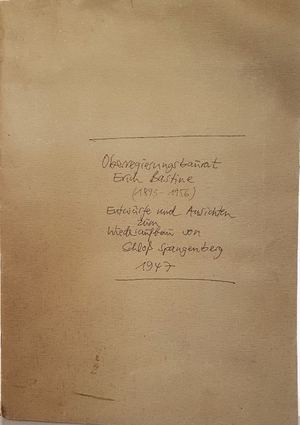 Oberregierungsbaurat
Erich Bastine
(1893-1956)
Entwürfe und Ansichten
zum
Wiederaufbau von
Schloß Spangenberg
1947